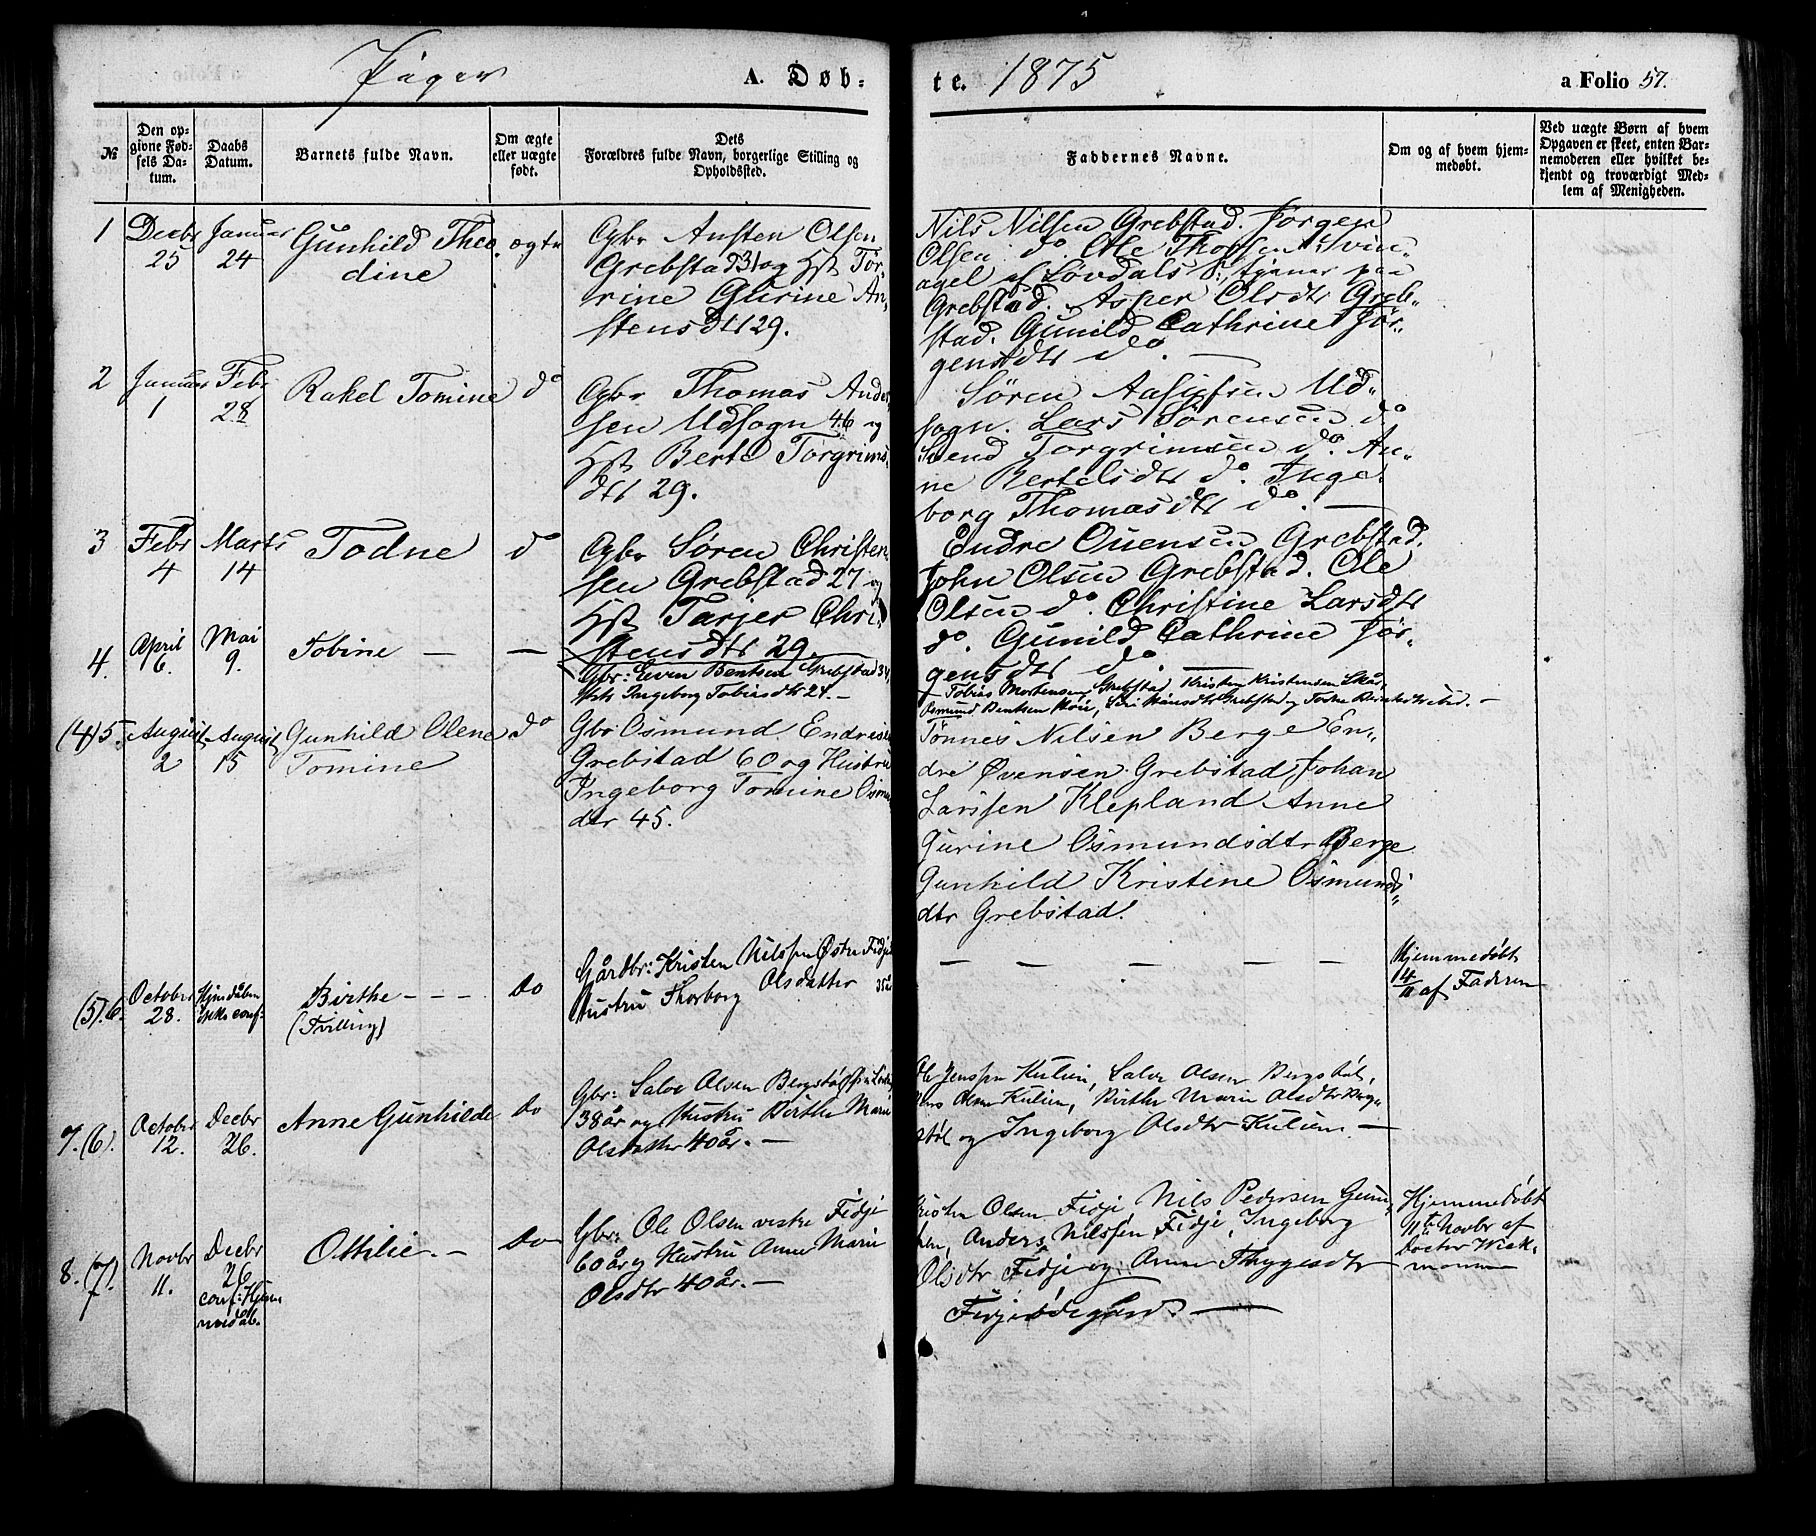 Piger A. Døb- te. 1875 a Folio 57.
№
Den op-
givne Fød-
sels Da-
tum.
Daabs
Datum.
Barnets fulde Navn.
Om ægte
eller uægte
født.
Dets
Forældres fulde Navn, borgerlige Stilling og
Opholdssted.
Faddernes Navne.
Om og af hvem hjem-
medøbt.
Ved uægte Børn af hvem
Opgaven er skeet, enten Bar-
nemoderen eller hvilket be-
kjendt og troværdigt Med-
lem af Menigheden.
1
Decbr
25
Januar
24
Gunhild Theo
dine
ægte
Gbr Ansten Olsen
Grebstad 31 og Hst Tor-
rine Gurine An-
stensdtr 29.
Nils Nilsen Grebstad. Jørgen
Olsen do Ole
agel af Løvdals S: tjener paa
Grebstad. Asper Olsdtr Greb-
stad. Gunild Cathrine Jør-
gensdtr do. —
2
Januar
1
Febr
28
Rakel Tomine
do
Gbr Thomas Ander
sen Udsogn 46 og
Hst Berte Torgrims
dtr 29.
Søren Aslufsen Ud-
sogn. Lars Sørensen do
Svend Torgrimsen do. An-
ne Bertelsdtr do. Inge-
borg Thomasdtr do. —
3
Febr
4
Marts
14
Todne
do
Gbr Søren Christen
sen Grebstad 27 og
Hst Tarjer Chri-
stensdtr 29.
Endre Ouensen Grebstad.
John Olsen Grebstad. Ole
Olsen do. Christine Larsdtr
do. Gunild Cathrine Jør-
gensdtr do
4.
April
6.
Mai
9.
Tobine — —
Gbr: Even Bentsen Grebstad 34,
Ingeborg Tobiasdtr 24. —
Tobias Mortensen Grebstad, Kristen Kristensen Skår,
Osmund Bentsen Grebstad og Todne
(4) 5.
August
2
August
15
Gunhild Olene
Tomine
do
Gbr Osmund Endresen
Grebstad 60 og Hustru
Ingeborg Tomine Osmu
dtr 45.
Tønnes Nilsen Berge En-
dre Øvensen Grebstad, Johan
Larssen Klepland Anne
Gurine Osmundsdtr Berge
Gunhild Kristine Osmunds
dtr Grebstad.
(5). 6.
October
28.
Hjmdåben
ikke conf:
Birthe - - -
(Tvilling)
Do
Gårdbr: Kristen Nilssen Østre Fidje
Hustru Thorborg Olsdatter 35 år
— — — — —
Hjemmedøbt
4/11 af Faderen
7. (6).
October
12.
Decbr
26.
Anne Gunhilde
Do
Gbr: Salve Olsen Bergstøl
38 år og Hustru Birthe Marie
Olsdatter 40 år. —
Ole Jenssen Kulien, Salve Olsen Bergstøl,
Jens Olsen Kulien, Birthe Marie Olsdtr Berg-
støl og Ingeborg Olsdtr Kulien. —
8. (7).
Novbr
11.
Decbr
26
conf: Hjem
medåb.
Ottilie. —
Do
Gbr: Ole Olsen vestre Fidje
60 år og Hustru Anne Marie
Olsdtr 40 år. —
Kristen Olsen Fidje, Nils Pedersen
Anders Nilssen Fidje, Ingeborg
Olsdtr Fidje og Anne Thygesdtr
Fidjeødegård. —
Hjemmedøbt
11te Novbr af
Doctor Wiek-
mann